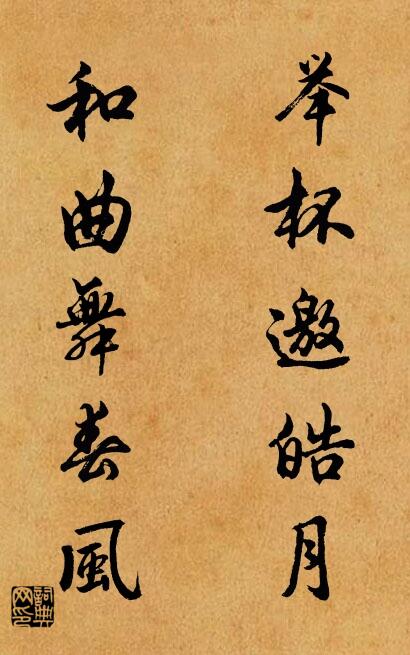 举杯邀皓月
和曲舞春風
詞典网印